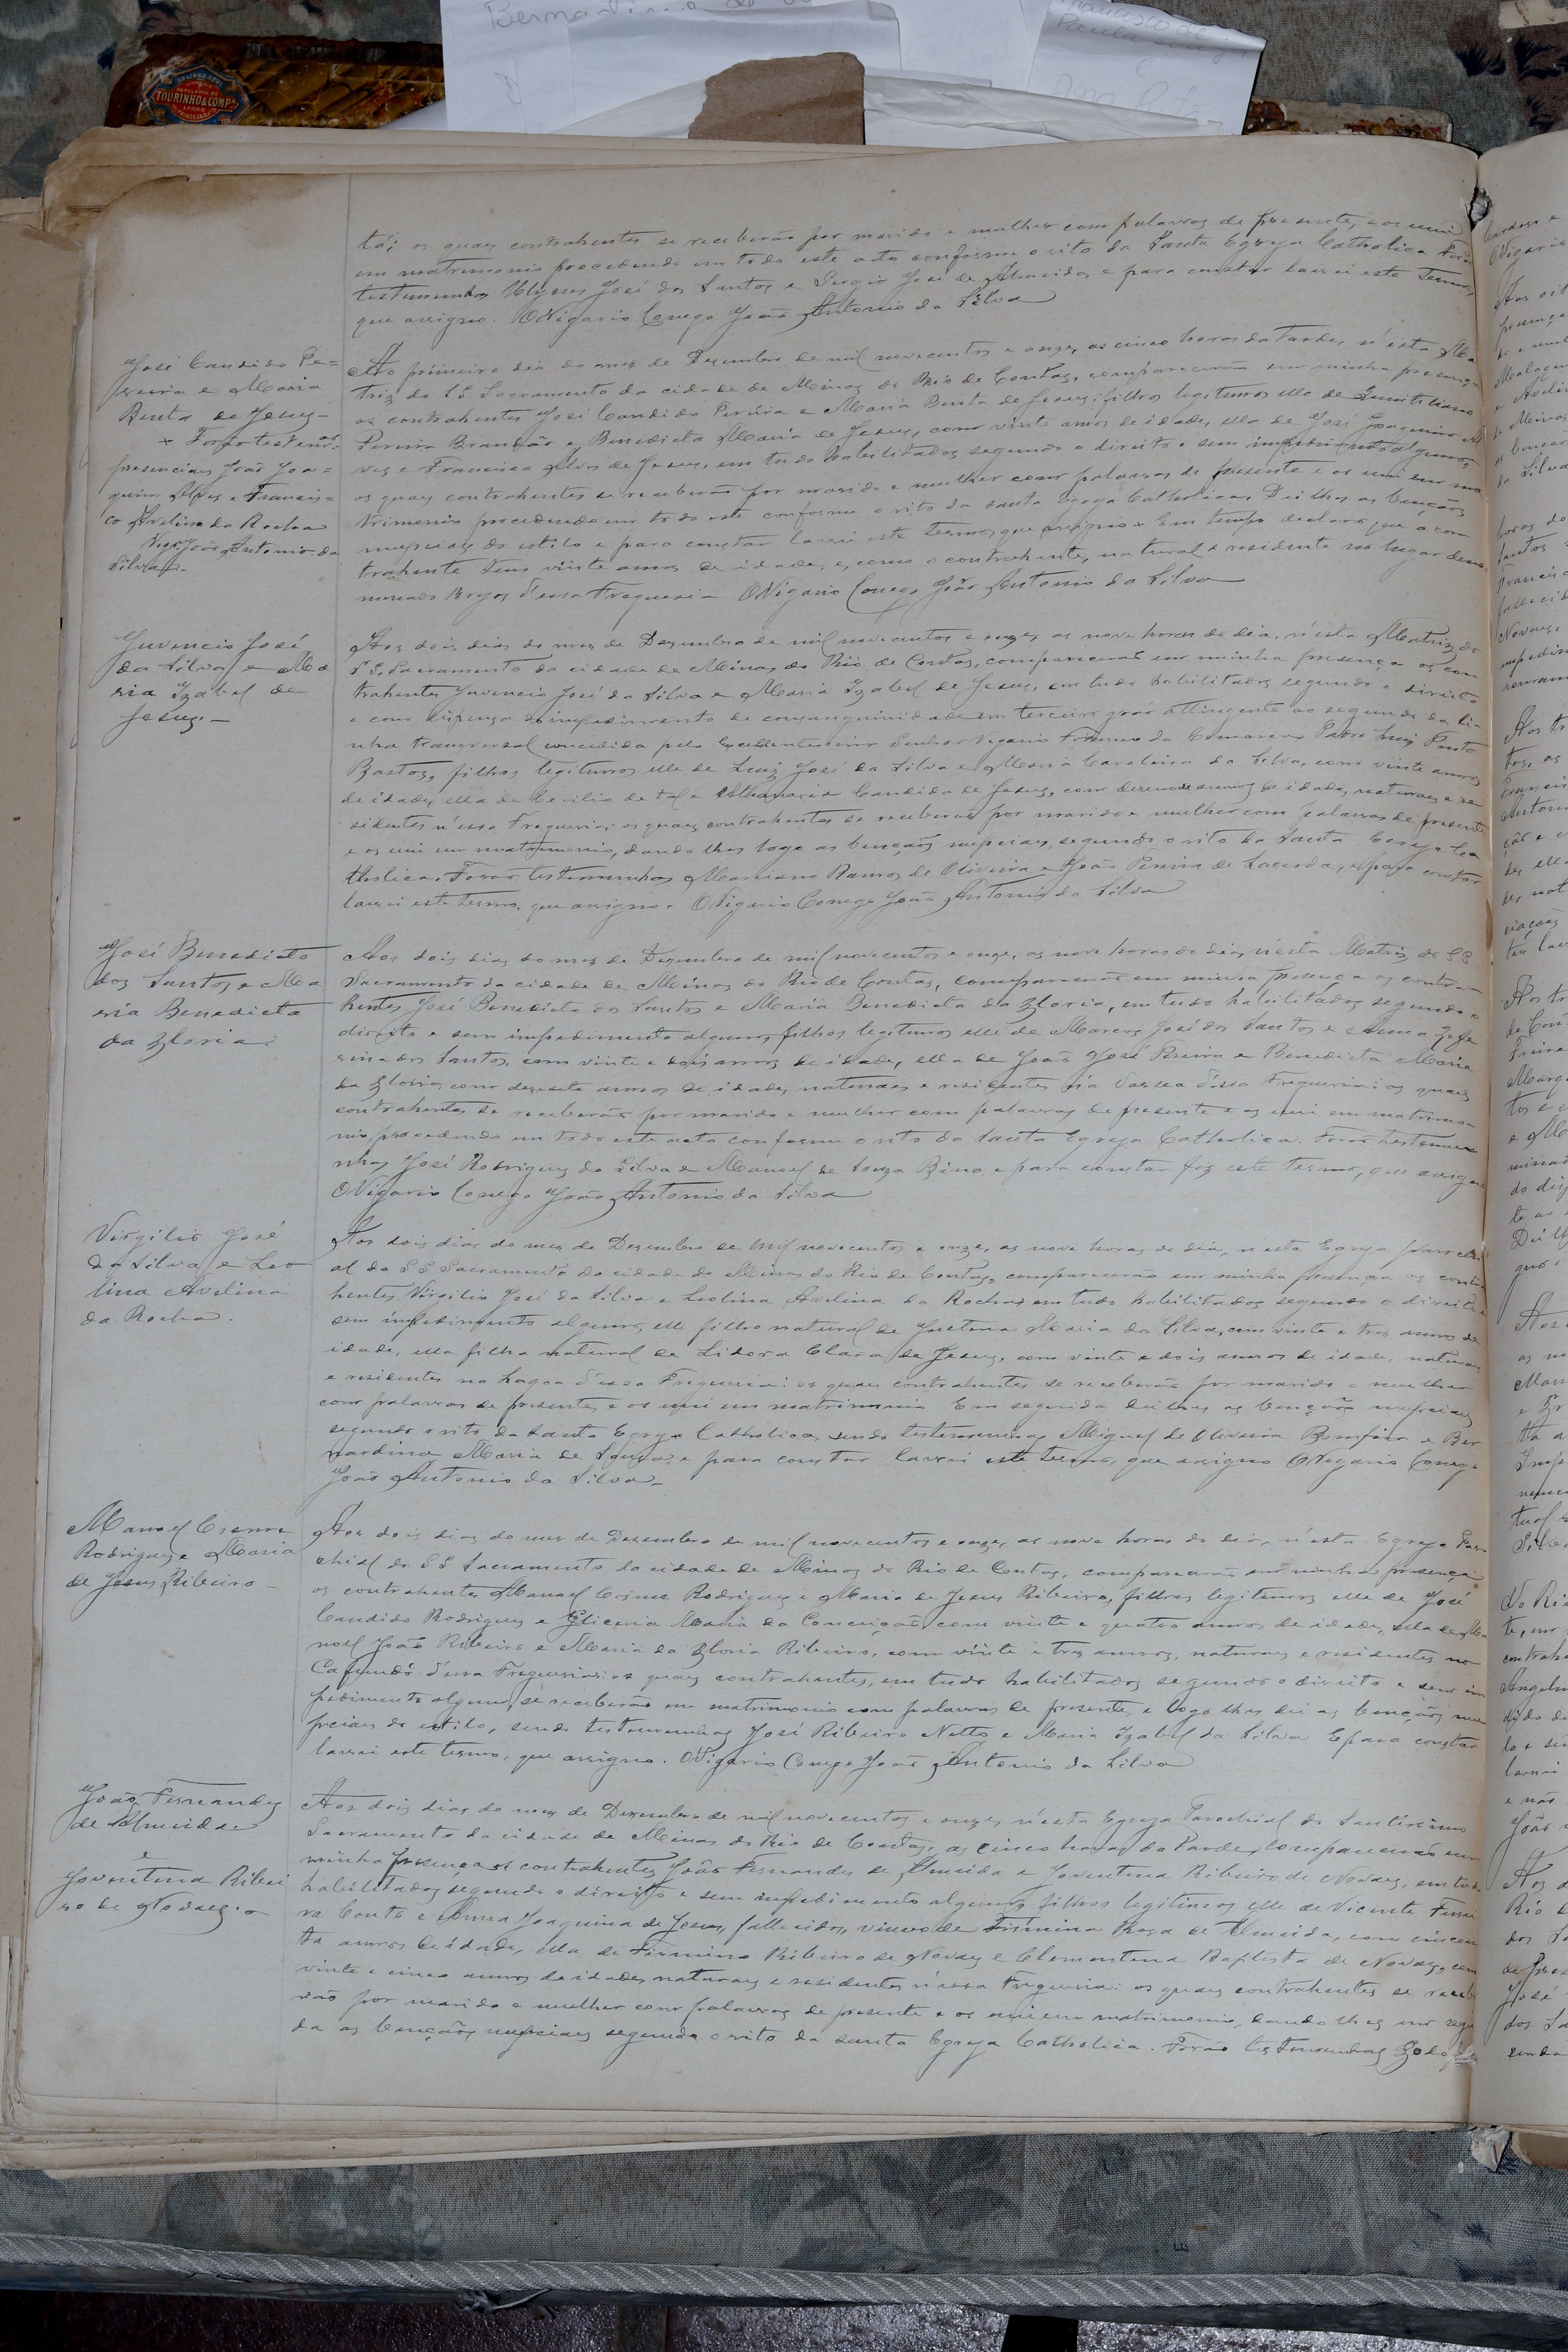 Bernardina de
Francisco de
Paula
e
Ana Rita
TOURINHO & COMPª
ta; os quaes contrahentes se receberão por marido e mulher com palavras de presente, e os uni
em matrimonio procedendo em todo este acto conforme o rito da Santa Egreja Catholica Forão
testemunhas Ulysses José dos Santos e Sergio José de Almeida, e para constar lavrei este termo,
que assigno. O Vigario Conego João Antonio da Silva
José Candido Pe=
reira e Maria
Benta de Jesus-
+ Forão testemªs
presenciaes João Joa=
quim Alves e Francis=
co Avelino da Rocha
Vigrº João Antonio da
Silva.
Ao primeiro dia do mez de Dezembro de mil novecentos e onze, as cinco horas da tarde, n'esta Ma
triz do SS Sacramento da cidade de Minas do Rio de Contas, comparecerão em minha presença
os contrahentes José Candido Pereira e Maria Benta de Jesus; filhos legitimos elle de
Pereira Brandão e Benedicta Maria de Jesus, com vinte annos de idade, ella de José Joaquim Al
ves e Francisca Alves de Jesus, em tudo habilitados segundo o direito e sem impedimento algum,
os quaes contrahentes se receberão por marido e mulher com palavras de presente e os uni em ma
trimonio procedendo em todo este conforme o rito da santa Egreja Catholica. Dei lhes as bençãos
nupciaes do estilo e para constar lavrei este termo, que assigno + Em tempo declaro que a con
trahente tem vinte annos de idade, e, como o contrahente, natural e residente no lugar deno
minado Brejos d'essa Freguesia O Vigario Conego João Antonio da Silva
Juvencio José
da Silva e Ma
ria Izabel de
Jesus.-
Aos dois dias do mez de Dezembro de mil novecentos e onze, as nove horas do dia, n'esta Matriz do
SS. Sacramento da cidade de Minas do Rio de Contas, comparecerão em minha presença os con
trahentes Juvencio José da Silva e Maria Izabel de Jesus, em tudo habilitados segundo o direito
e com dispensa do impedimento de consanguinidade em terceiro gráo attingente ao segundo da li-
nha transversal concedida pelo Excellentissimo Senhor Vigario Foraneo da Comarca Padre Luiz Pinto
Bastos, filhos legitimos elle de Luiz José da Silva e Maria Carolina da Silva, com vinte annos
de idade, ella de Cecilio de tal e Athanazia Candida de Jesus, com dezenove annos de idade, naturaes e re
sidentes n'essa Freguesia; os quaes contrahentes se receberão por marido e mulher com palavras de presente
e os uni em matrimonio, dando lhes logo as bençãos nupciaes, segundo o rito da Santa Egreja Ca
tholica. Forão testemunhas Marciano Ramos de Oliveira e João Pereira de Lacerda, e para constar
lavrei este termo, que assigno. O Vigario Conego João Antonio da Silva
José Benedicto
dos Santos e Ma
ria Benedicta
da Gloria
Aos dois dias do mez de Dezembro de mil novecentos e onze, as nove horas do dia, n'esta Matriz do SS
Sacramento da cidade de Minas do Rio de Contas, comparecerão em minha presença os contra-
hentes José Benedicto dos Santos e Maria Benedicta da Gloria, em tudo habilitados segundo o
direito e sem impedimento algum, filhos legitimos elle de Marcos José dos Santos e Anna Zefe
rina dos Santos, com vinte e dois annos de idade, ella de João José Pereira e Benedicta Maria
da Gloria, com dezesete annos de idade, naturaes e residentes na Varzea d'essa Freguesia: os quaes
contrahentes se receberão por marido e mulher com palavras de presente e os uni em matrimo-
nio, procedendo em todo este acto conforme o rito da Santa Egreja Catholica. Forão testemu
nhas José Rodrigues da Silva e Manoel de Souza Bino e para constar fiz este termo, que assigno
O Vigario Conego João Antonio da Silva
Virgilio José
da Silva e Leo
lina Avelina
da Rocha.
Aos dois dias do mez de Dezembro de mil novecentos e onze, as nove horas do dia, n'esta Egreja parochi
al do SS Sacramento da cidade de Minas do Rio de Contas, comparecerão em minha presença os contra
hentes Virgilio José da Silva e Leolina Avelina da Rocha, em tudo habilitados segundo o direito e
sem impedimento algum, elle filho natural de Justina Maria da Silva, com vinte e tres annos de
idade, ella filha natural de Lidora Clara de Jesus, com vinte e dois annos de idade, naturaes
e residentes na Lagoa d'essa Freguesia: os quaes contrahentes se receberão por marido e mulher
com palavras de presente, e os uni em matrimonio Em seguida dei lhes as bençãos nupciaes
segundo o rito da Santa Egreja Catholica, sendo testemunhas Miguel de Oliveira Bomfim e Ber
nardina Maria de Souza, e para constar lavrei este termo, que assigno O Vigario Conego
João Antonio da Silva-
Manoel Cosme
Rodrigues e Maria
de Jesus Ribeiro-
Aos dois dias do mez de Dezembro de mil novecentos e onze, as nove horas do dia, n'esta Egreja Paro
chial do SS Sacramento da cidade de Minas do Rio de Contas, comparecerão em minha presença
os contrahentes Manoel Cosme Rodrigues e Maria de Jesus Ribeiro, filhos legitimos elle de José
Candido Rodrigues e Gliceria Maria da Conceição, com vinte e quatro annos de idade, ella de Ma
noel João Ribeiro e Maria da Gloria Ribeiro, com vinte e tres annos, naturaes e residentes no
Cafundó d'essa Freguesia: os quaes contrahentes, em tudo habilitados segundo o direito e sem im
pedimento algum, se receberão em matrimonio com palavras de presente, e logo lhes dei as bençãos nu
pciaes do estilo, sendo testemunhas José Ribeiro Netto e Maria Izabel da Silva E para constar
lavrei este termo, que assigno. O Vigario Conego João Antonio da Silva
João Fernandes
de Almeida
e
Joventina Ribei
ro de Novaes.-
Aos dois dias do mez de Dezembro de mil novecentos e onze, n'esta Egreja Parochial do Santissimo
Sacramento da cidade de Minas do Rio de Contas, as cinco horas da tarde, comparecerão em
minha presença os contrahentes João Fernandes de Almeida e Joventina Ribeiro de Novaes, em tudo
habilitados segundo o direito e sem impedimento algum, filhos legitimos elle de Vicente Ferrei
ra Couto e Anna Joaquina de Jesus, fallecidos, viuvo de Firmina Rosa de Almeida, com cincoen
ta annos de idade, ella de Firmino Ribeiro de Novaes e Clementina Baptista de Novaes, com
vinte e cinco annos de idade, naturaes e residentes n'essa Freguesia: os quaes contrahentes se recebe
rão por marido e mulher com palavras de presente e os uni em matrimonio, dando lhes em segui
da as bençãos nupciaes segundo o rito da santa Egreja Catholica. Forão testemunhas